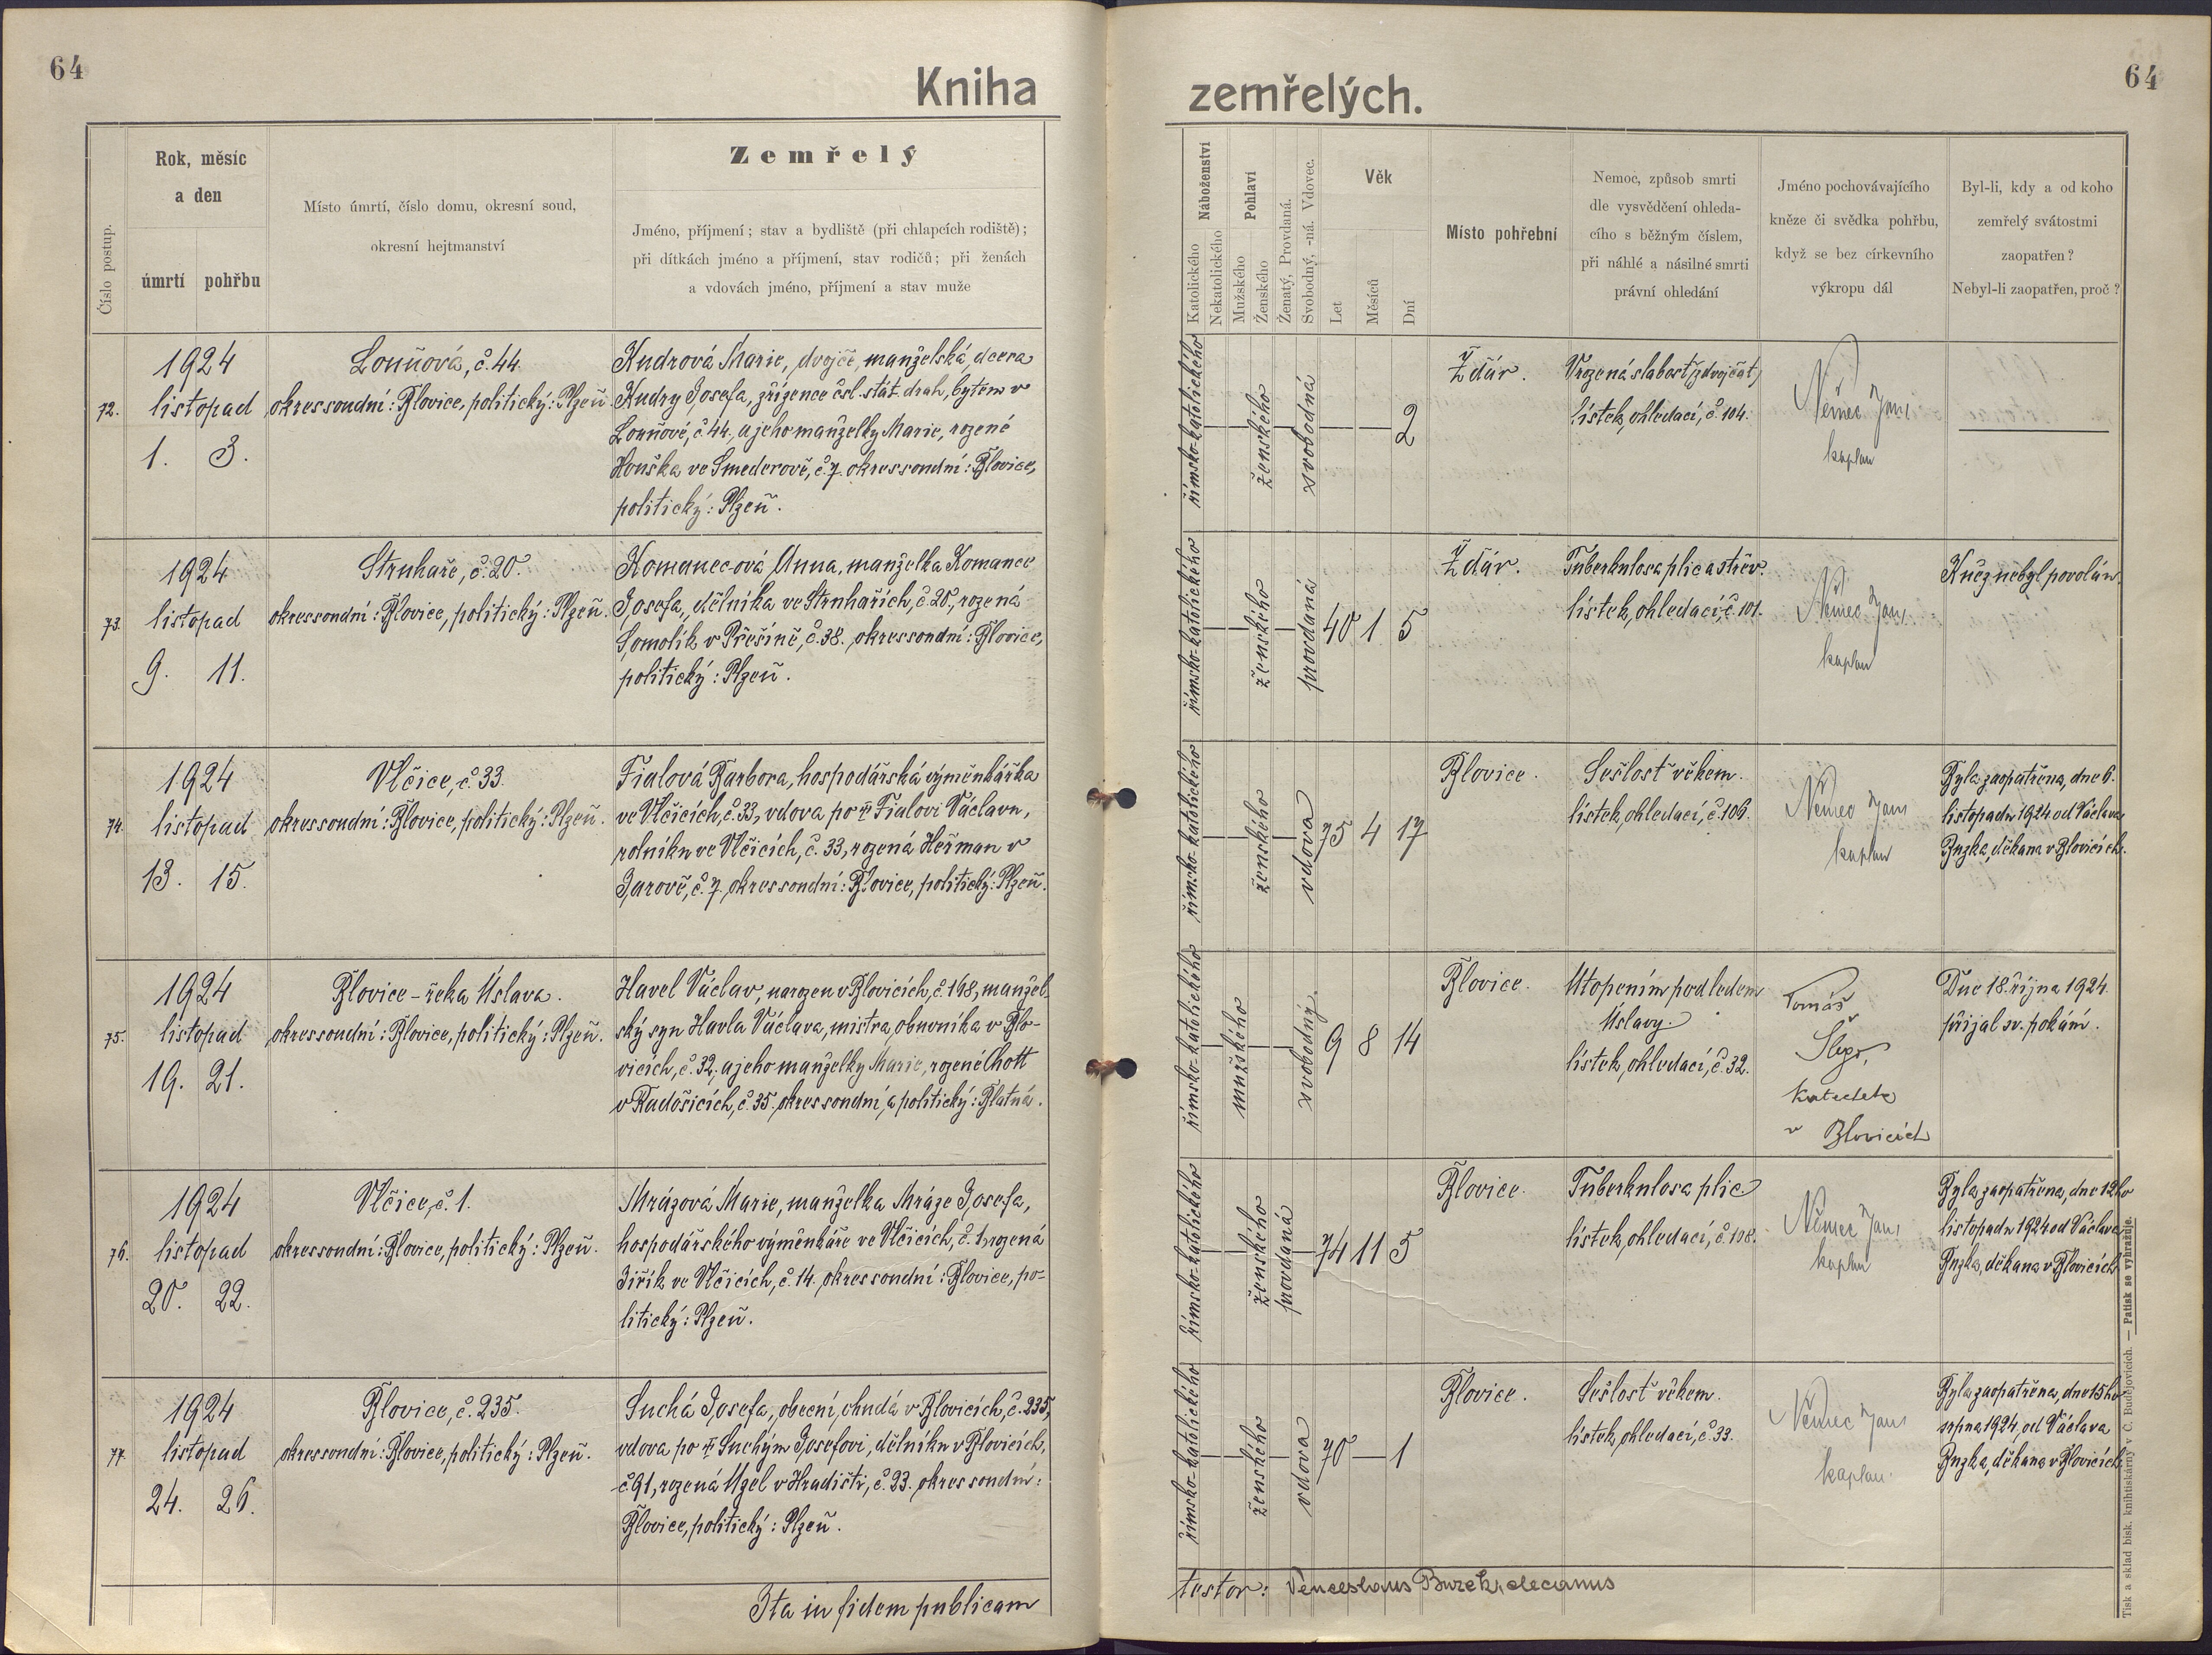 64
Kniha
Číslo postup.
Rok, měsíc
a den
úmrtí pohřbu
Místo úmrtí, číslo domu, okresní soud,
okresní hejtmanství
Zemřelý
Jméno, příjmení; stav a bydliště (při chlapcích rodiště);
při dítkách jméno a příjmení, stav rodičů; při ženách
a vdovách jméno, příjmení a stav muže
72.
1924
listopad
1. 3.
Louňová, č. 44.
okres soudní: Blovice, politický: Plzeň
Kudrová Marie, dvojče, manželská, dcera
Kudry Josefa, zřízence čsl. stát. drah, bytem v
Louňové, č. 44., a jeho manželky Marie, rozené
Houška ve Smederově, č. 7. okres soudní: Blovice,
politický: Plzeň.
73.
1924
listopad
9. 11.
Struhaře, č. 20.
okres soudní: Blovice, politický: Plzeň.
Komanec-ová Anna, manželka Komance
Josefa, dělníka ve Struhařích, č. 20., rozená
Somolík v Přešíně, č. 38. okres soudní: Blovice,
politický: Plzeň.
74.
1924
listopad
13. 15.
Vlčice, č. 33.
okres soudní: Blovice, politický: Plzeň.
Fialová Barbora, hospodářská výměnkářka
ve Vlčicích, č. 33, vdova po Fialovi Václavu,
rolníku ve Vlčicích, č. 33, rozená Heřman v
Jarově, č. 7. okres soudní: Blovice, politický: Plzeň.
75.
1924
listopad
19. 21.
Blovice - řeka Úslava.
okres soudní: Blovice, politický: Plzeň.
Havel Václav, narozen v Blovicích, č. 198, manžel-
ský syn Havla Václava, mistra obuvníka v Blo-
vicích, č. 32, a jeho manželky Marie, rozené Chott
v Radošicích, č. 35. okres soudní, a politický: Blatná.
76.
1924
listopad
20. 22.
Vlčice, č. 1.
okres soudní: Blovice, politický: Plzeň.
Mrázová Marie, manželka Mráze Josefa,
hospodářského výměnkáře ve Vlčicích, č. 1, rozená
Jiřík ve Vlčicích, č. 14. okres soudní: Blovice, po-
litický: Plzeň.
77.
1924
listopad
24. 26.
Blovice, č. 235.
okres soudní: Blovice, politický: Plzeň.
Suchá Josefa, obecní chudá v Blovicích, č. 235,
vdova po Suchým Josefovi, dělníku v Blovicích,
č. 91, rozená Uzel v Hradišti, č. 23. okres soudní:
Blovice, politický: Plzeň.
Ita in fidem publicam
64
zemřelých.
Náboženství
Katolického
Nekatolického
Pohlaví
Mužského
Ženského
Ženatý, Provdaná.
Svobodný, -ná. Vdovec.
Věk
Let
Měsíců
Dní
Místo pohřební
Nemoc, způsob smrti
dle vysvědčení ohleda-
cího s běžným číslem,
při náhlé a násilné smrti
právní ohledání
Jméno pochovávajícího
kněze či svědka pohřbu,
když se bez církevního
výkropu dál
Byl-li, kdy a od koho
zemřelý svátostmi
zaopatřen?
Nebyl-li zaopatřen, proč?
římsko-katolického
ženského
svobodná
2
Žďár.
Vrozená slabost (z dvojčat)
lístek, ohledací, č. 104.
Němec Jan,
kaplan
římsko-katolického
ženského
provdaná
40 1 5
Žďár.
Tuberkulosa plic a střev.
lístek, ohledací, č. 101.
Němec Jan,
kaplan
Kněz nebyl povolán.
římsko-katolického
ženského
vdova
75 4 17
Blovice.
Sešlost věkem.
lístek, ohledací, č. 106.
Němec Jan,
kaplan
Byla zaopatřena, dne 6.
listopadu 1924 od Václava
Buzka, děkana v Blovicích.
římsko-katolického
mužského
svobodný.
9 8 14
Blovice.
Utopením pod ledem
Úslavy.
lístek, ohledací, č. 32.
Tomáš
katecheta
v Blovicích
Dne 18. října 1924.
přijal sv. pokání.
římsko-katolického
ženského
provdaná
74 11 5
Blovice.
Tuberkulosa plic
lístek, ohledací, č. 108.
Němec Jan,
kaplan
Byla zaopatřena, dne 12ho
listopadu 1924 od Václava
Buzka, děkana v Blovicích
římsko-katolického
ženského
vdova
70 1
Blovice.
Sešlost věkem.
lístek, ohledací, č. 33.
Němec Jan,
kaplan.
Byla zaopatřena, dne 15ho
srpna 1924, od Václava
Buzka, děkana v Blovicích.
testor: Venceslaus Buzek, decanus
Tisk a sklad bisk. knihtiskárny v Č. Budějovicích. — Patisk se vyhražuje.